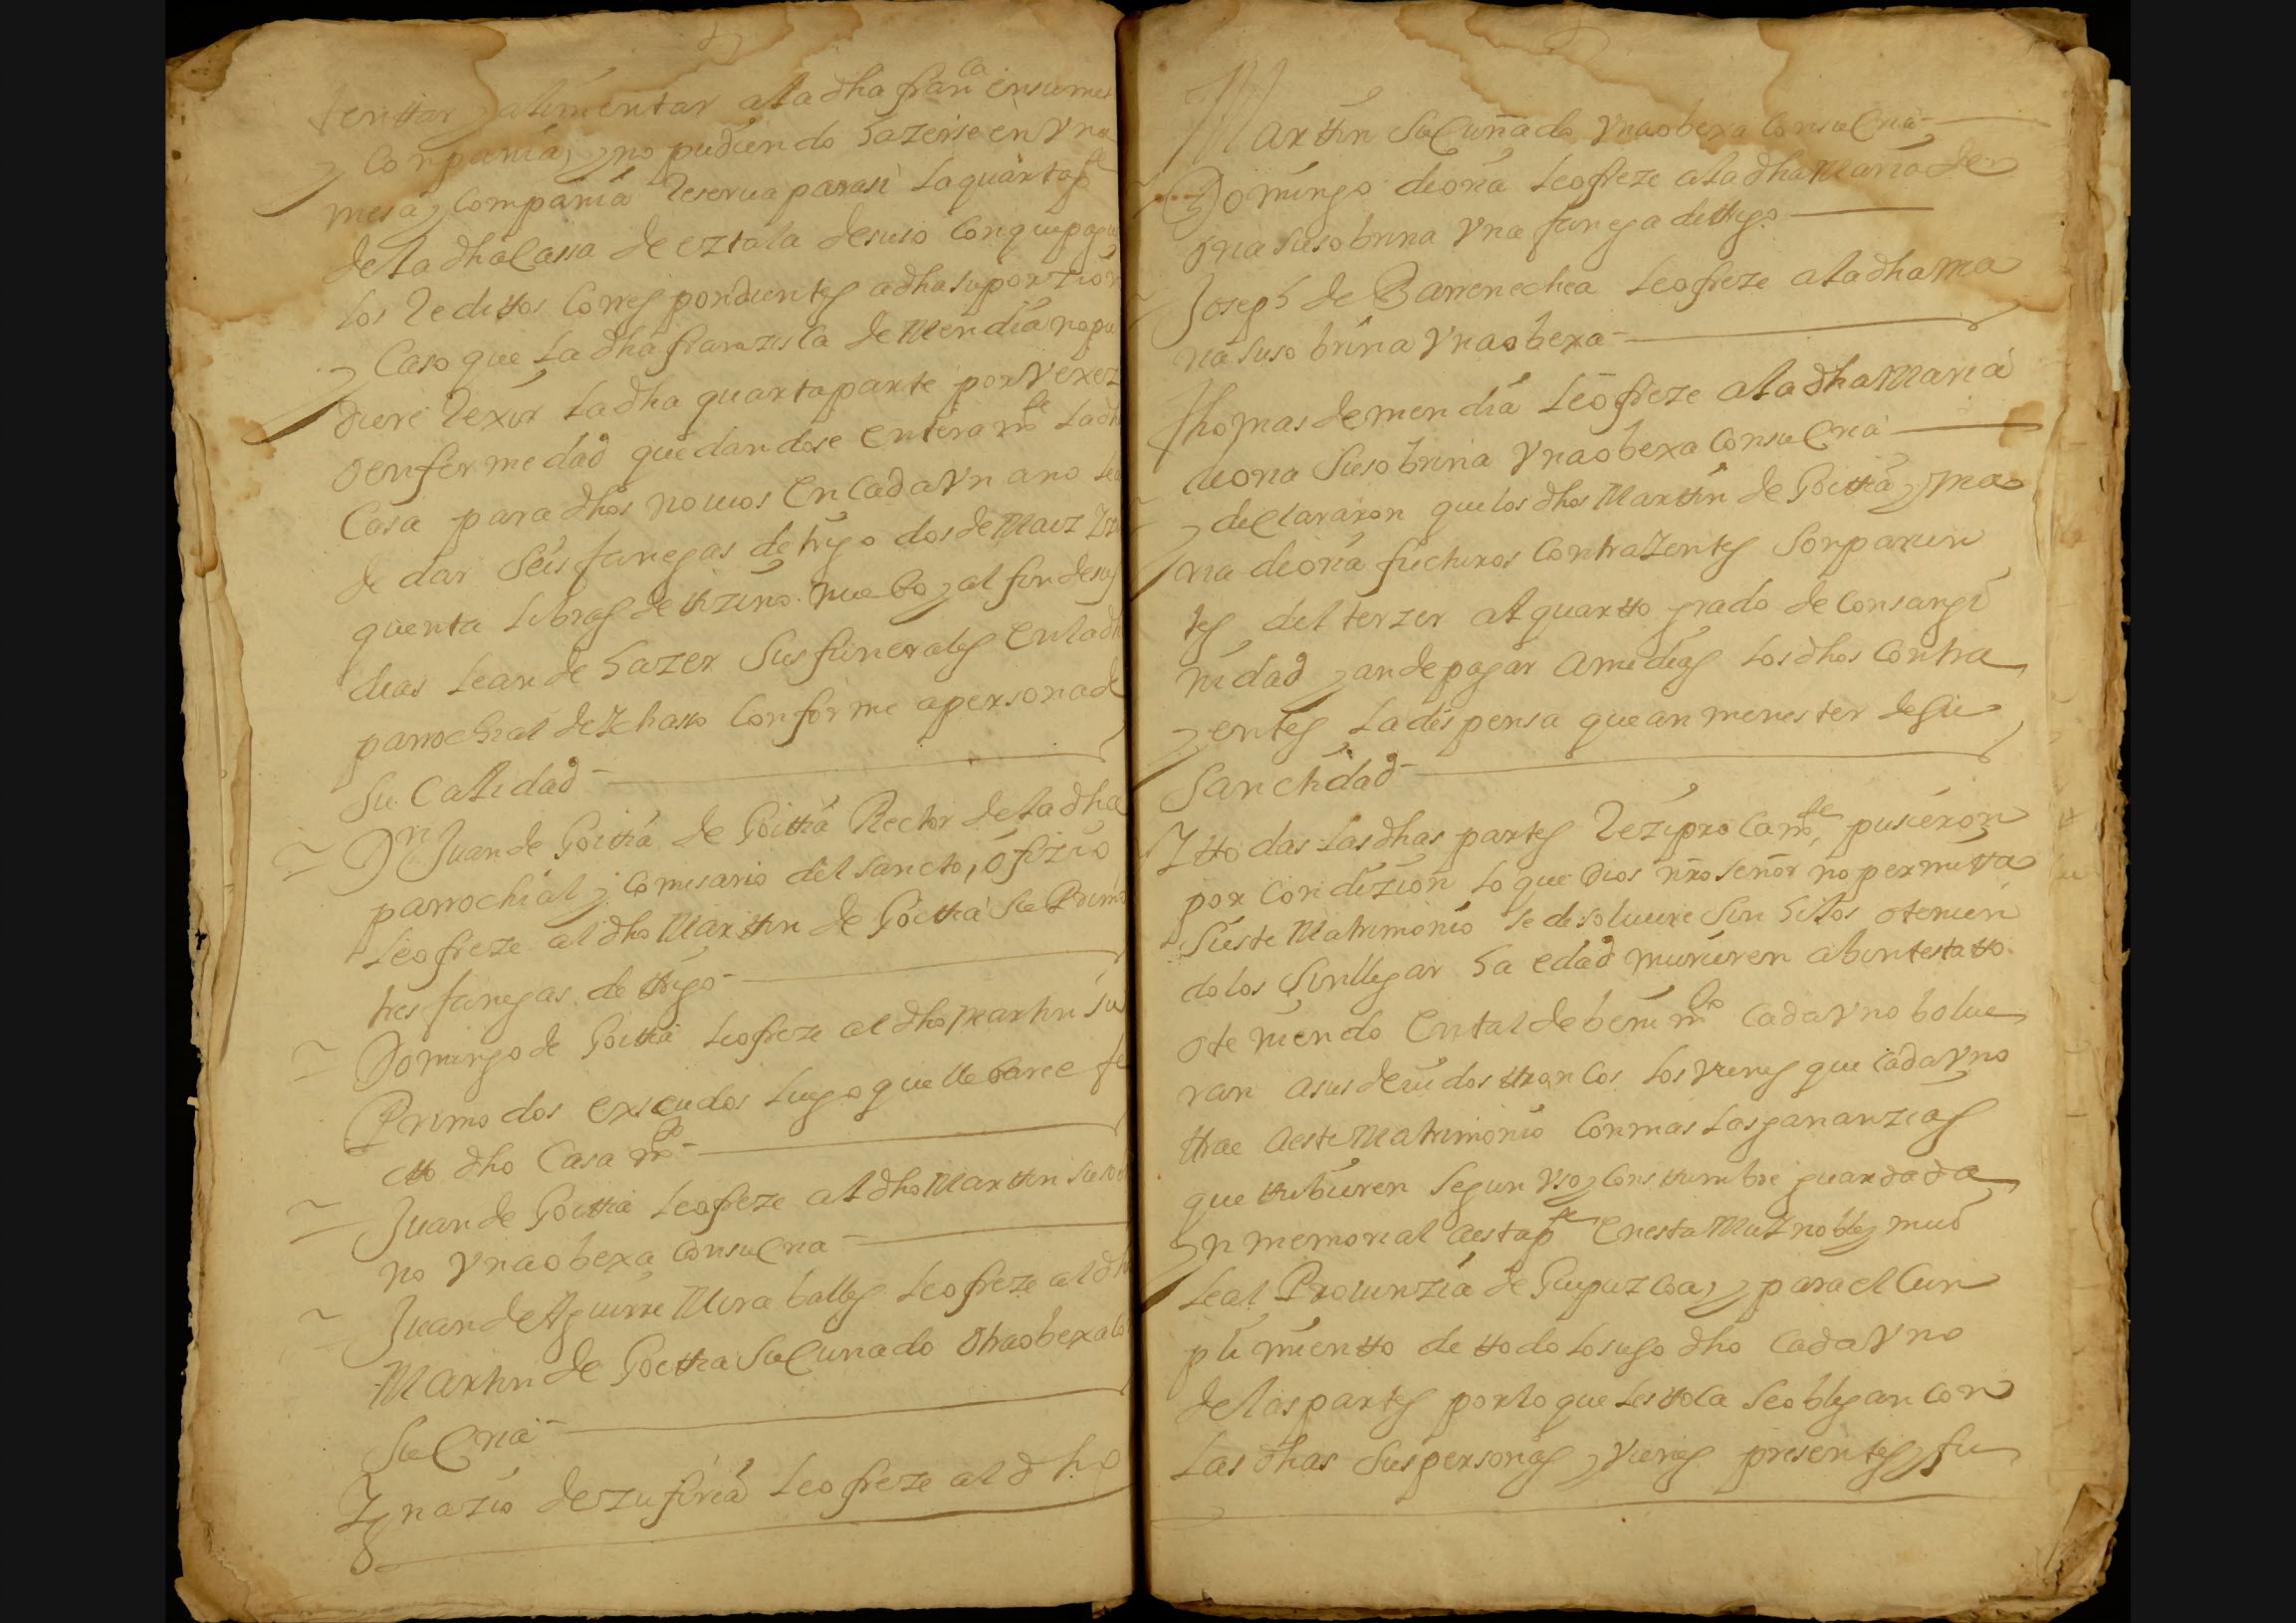 tenttar y alimentar a la dha fran^ca en su mes
y Conpania, y no pudiendo hazerse en Vna
mesa y Compania Reserua para si La quarta p^te
de la dha Cassa de eztala desuso Con que pague
los Redittos Correspondientes a dha su porzion
y Caso que La dha franzisca de Mendia no pu
diere Rexir La dha quarta parte por Vexez
o enfermedad quedandose enteram^te La dh
Casa para dhos nouios En Cada Vn ano le a
de dar Seis fanegas de trigo dos de Maiz
quenta Libras de ttozino nuebo y al fin de sus
dias Le an de hazer Sus funerales En la dh
parrochial de Ychasso Conforme a persona de
Su Calidad
D^n Juan de Goittia de Goittia Rector de la dha
parrochial y Comisario del Sancto, ofizio
Le ofreze al dho Marttin de Goittia Su Primo
tres fanegas de ttrigo
Domingo de Goittia Le ofreze al dho Martin su
Primo dos exscudos Luego que lleba
tto dho Casam^to
Juan de Goittia Le ofreze al dho Marttin Su
no Vna obexa Con su Cria
Juan de Aguirre Miraballes Le ofreze al dh
Martin de Goittia Su Cunado Otra obexa
Su Cria
Ygnazio de Zufiria Le ofreze al dho
Marttin Su Cuñado Vna obexa Con su Cria
Domingo de oria Le ofreze a la dha Maria de
oria su sobrina Vna fanega de ttrigo
Joseph de Barrenechea Le ofreze a la dha Ma
ria su sobrina Vna obexa
Thomas de mendia Le ofreze a la dha Maria
de oria Su sobrina Vna obexa Con su Cria
y declararon que los dhos Marttin de Goittia y Ma
ria de oria fucturos Contrazentes Son parien
tes del terzer al quartto grado de Consangi
nidad y an de pagar a medias Los dhos Contra
yentes La dispensa que an menester de Su
Sanctidad
Y ttodas Las dhas partes Reziprocam^te, pusieron
por Condizion Lo que Dios nro Señor no permitta
Si este Matrimonio Se desoluiere Sin hilos o tenien
dolos Sin llegar ha edad murieren abintestatto
o teniendo En tal debenim^to Cada Vno bolue
ran a sus deuidos ttroncos Los Vienes que Cada Vno
ttrae a este Matrimonio Con mas Las gananzias
que ttubieren Segun Vso y Consttumbre guardada
yn memorial a esta p^te En esta Mui noble y mui
Leal Prouinzia de Guipuzcoa, y para el Cun
plimientto de ttodo Lo suso dho Cada Vno
de las partes por lo que Les ttoca Se obligan Con
Las dhas Sus personas y Vienes presentes y fu